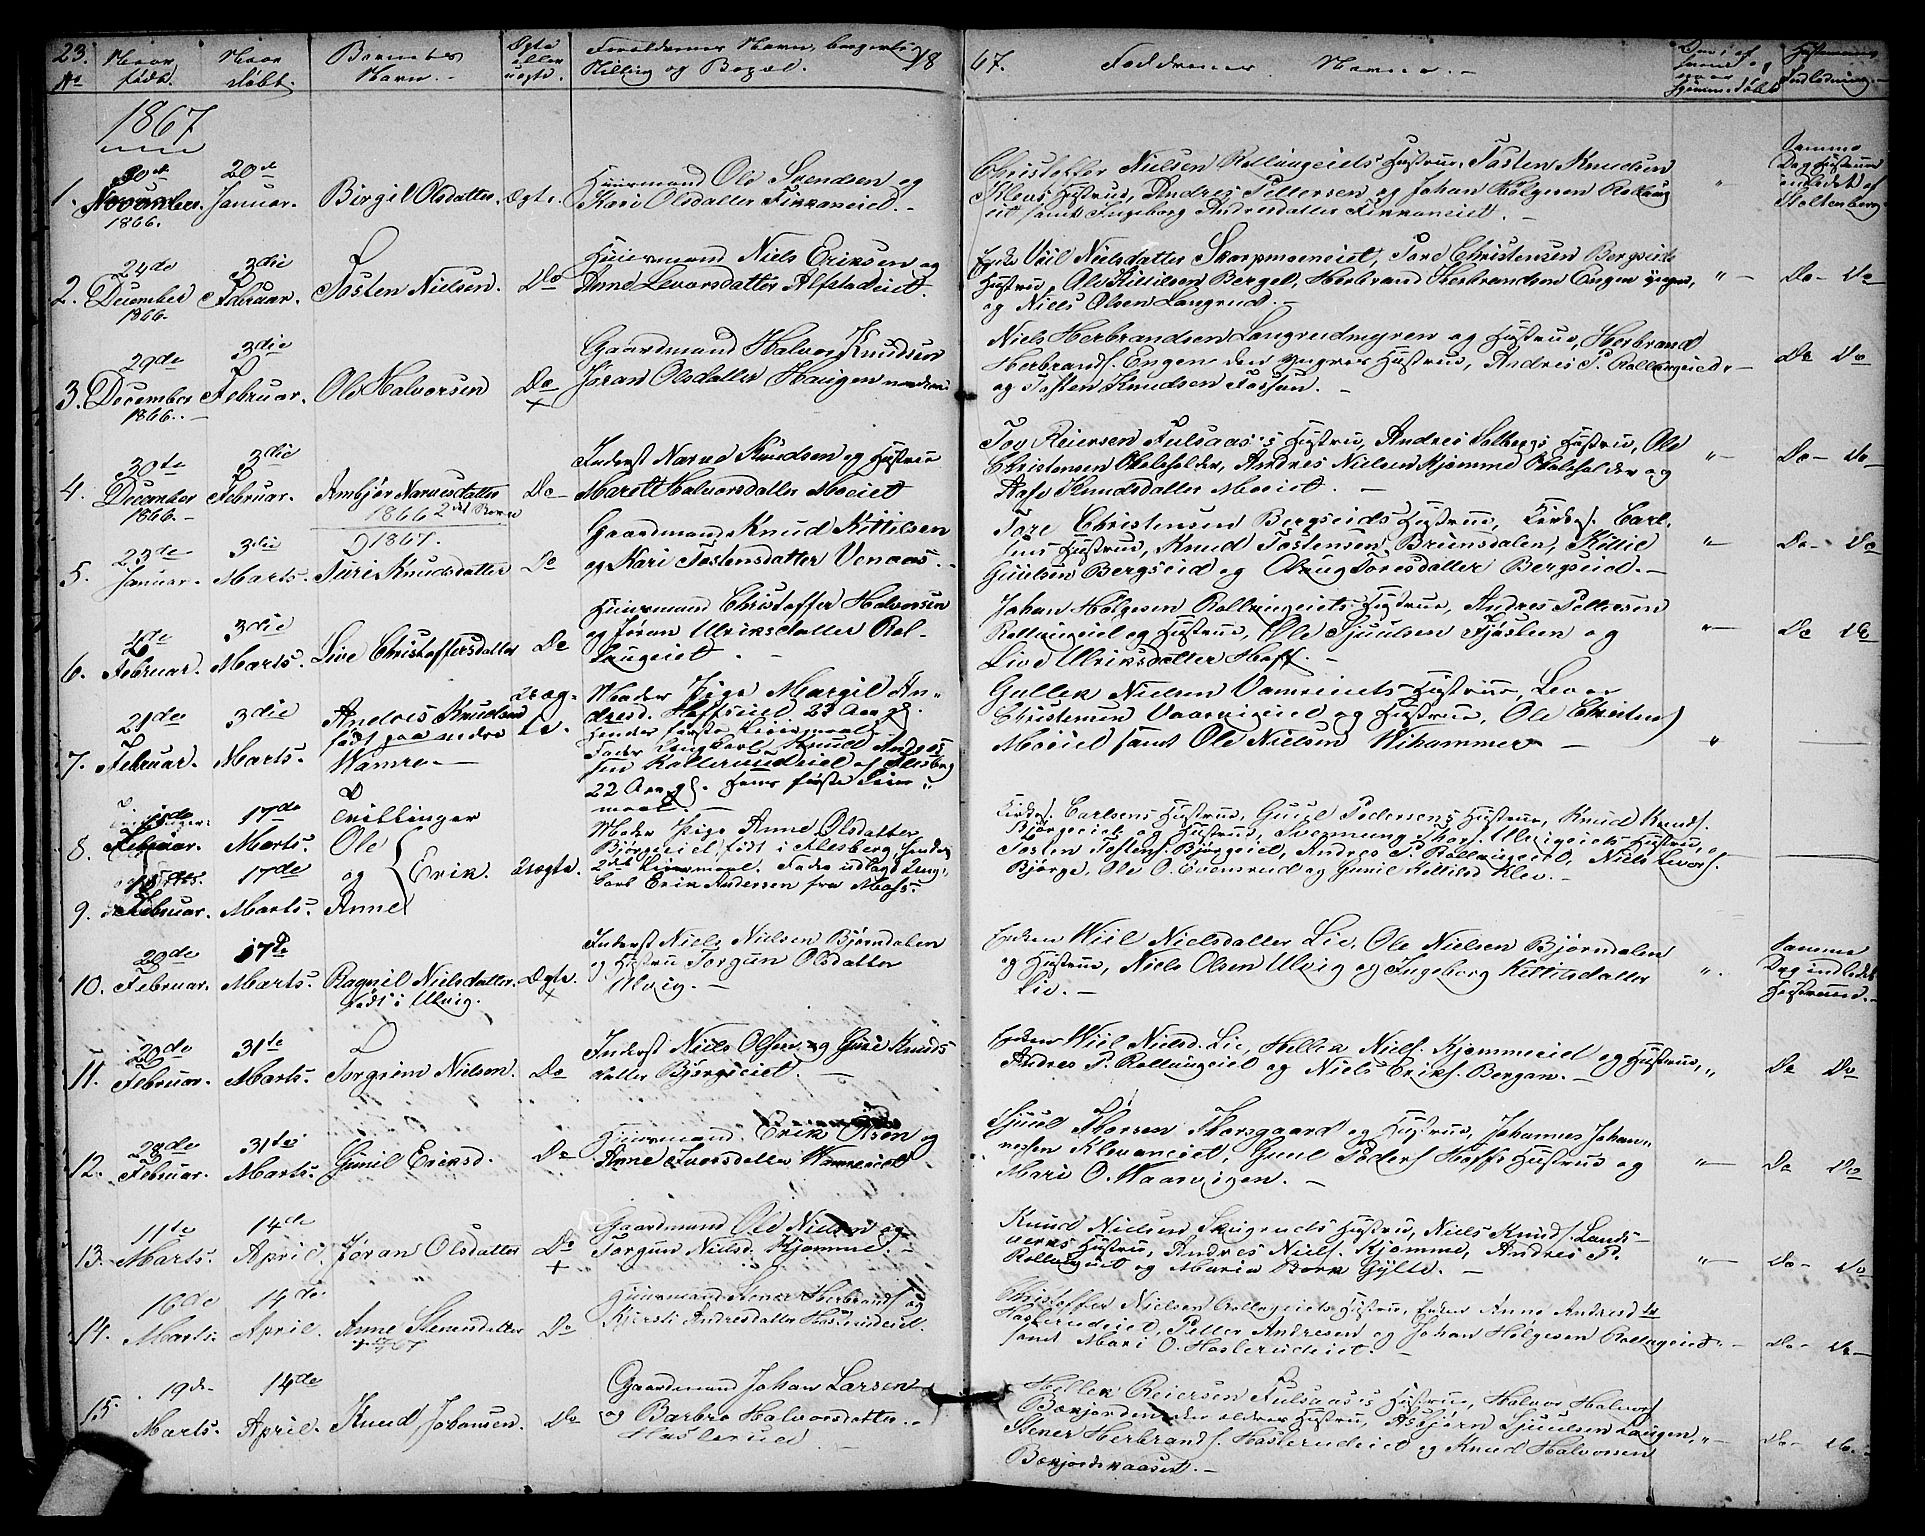 23.
No
Naar født.
Naar døbt.
Barnets Navn.
Ægte eller uægte.
Forældrenes Navn, borgerlige
Stilling og Bopæl.
18
67.
Faddrenes Navne.
Indledning.
1867
1.
30te November 1866.
20de Januar.
Birgit Olsdatter.
Ægte.
Huusmand Ole Svendsen og
Kari Olsdatter
Christoffer Nielsen Rollaugeiets Hustrue, Tosten Knudsen
Hustrue, Andres Pettersen og Johan Helgesen Rollaug
eiet samt Ingeborg Andresdatter
Samme
Dag Hustruen
indledet af
Stoltenberg
2.
24de December 1866.
3die Februar.
Tosten Nielsen.
Do
Huusmand Niels Eriksen og
Anne Levorsdatter Alfstadeiet.
Enke Viil Nielsdatter Skarpmoeneiet, Tore Christensen Bergseids
Hustrue, Ole Kittilsen Berget, Herbrand Herbrandsen Engen yngre,
og Niels Olsen Langrud.
Do Do
3.
29de December 1866.
3die Februar.
Ole Halvorsen
Do
Gaardmand Halvor Knudsen
Jøran Olsdatter Haugen
Niels Herbrandsen Langrudmyren og Hustrue, Herbrand
Herbrands. Engen den yngres Hustrue, Andres P. Rollaugeiet
og Tosten Knudsen Fossan.
Do Do
4.
30te December 1866.
3die Februar.
Ambjør Narvesdatter
1866 2det Barn
Do
Inderst Narve Knudsen og Hustrue
Marit Halvorsdatter Moeiet
Tov Reiersen Fulsaas's Hustrue, Andres Solbergs Hustrue, Ole
Christensen Skoleholder, Andres Nielsen Kjomme Skoleholder og
Aase Knudsdatter Moeiet.
Do Do
1867.
5.
23de Januar.
3die Marts.
Turi Knudsdatter
Do
Gaardmand Knud Kittilsen
og Kari Tostensdatter Venaas.
Tore Christensen Bergseids Hustrue, Kirkes. Carl-
sens Hustrue, Knud Tostensen Brunsdalen, Kittil
Guulsen Bergseid og Aslaug Toresdatter Bergseid.
Do Do
6.
Februar.
3die Marts.
Live Christoffersdatter
Do
Huusmand Christoffer Halvorsen
og Jøran Ulriksdatter Rol-
laugeiet.
Johan Helgesen Rollaugeiets Hustrue, Andres Pettersen
Rollaugeiet og Hustrue, Ole Sjuulsen Fjøsteen og
Live Ulriksdatter Hoff.
Do Do
7.
21de Februar.
3die Marts.
Andres Knudsen
født paa nedre
Wamra
Uæg-
te.
Moder Pige Margit An-
dresd. Hoffseiet 27 Aar gl.
hendes første Leiermaal.
Fader Ungkarl Knud Andres
sen af Flesberg
22 Aar gl. Hans første Leier-
maal.
Gullek Nielsen Vamreiets Hustrue, Levor
Christensen Vaarvigeiet og Hustrue, Ole Christens
Moeiet samt Ole Nielsen Wihammer
8.
Februar.
17de Marts.
Tvillinger
Ole
og
Erik.
Uægte.
Moder Pige Anne Olsdatter
Bjørgeeiet født i Flesberg, hendes
2det Leiermaal. Fader udlagt Ung-
karl Erik Andersen fra Moss.
Kirkes. Carlsens Hustrue, Guul Pedersens Hustrue, Knud Knuds.
Bjørgeeiet og Hustrue, Svenung Thors. Ulvigeiets Hustrue,
Tosten Tostens. Bjørgeeiet, Andres P. Rollaugeiet, Niels Levors.
Bjørge, Ole O. Evensrud og Gunil Kittilsd. Klev.
9.
Februar.
17de Marts.
Anne
10.
20de Februar.
17de Marts.
Ragnil Nielsdatter.
født i Ulvig.
Ægte.
Inderst Niels Nielsen Bjørndalen
og Hustrue Torgun Olsdatter
Ulvig.
Enken Wiil Nielsdatter Lie, Ole Nielsen Bjørndalen
og Hustrue, Niels Olsen Ulvig og Ingeborg Kittilsdatter
Lie.
Samme
Dag indledet
Hustruen.
11.
20de Februar.
31te Marts.
Torgrim Nielsen.
Do
Inderst Niels Olsen og Guri Knuds
datter Bjørgeeiet.
Enken Wiil Nielsd. Lie, Hellik Niels. Kjommeeiet og Hustrue,
Andres P. Rollaugeiet og Niels Eriks. Bergan.
Do Do
12.
28de Februar.
31te Marts.
Gunil Eriksd.
Do
Huusmand Erik Olsen og
Anne Iversdatter Wamreeiet
Sjuul Thorsen Thorsgaard og Hustrue, Johannes Johan-
nesen Klevaneiet, Guul Peders. Hoffs Hustrue og
Mari O. Waarvigen.
Do Do
13.
11te Marts.
14de April.
Jøran Olsdatter
Do
Gaardmand Ole Nielsen og
Torgun Nielsd. Kjomme.
Knud Nielsen Skugruds Hustrue, Niels Knuds. Lands-
værks Hustrue, Andres Niels. Kjomme, Andres P.
Rollaugeiet og Maria Bork Gylte.
Do Do
14.
16de Marts.
14de April.
Anne Stenersdatter
Do
Huusmand Stener Herbrands. og
Kjersti Andresdatter Haslerudeiet.
Christoffer Nielsen Rollageiets Hustrue, Enken Anne Andresdtr
Haslerudeiet, Petter Andresen og Johan Helgesen Rollageiet
samt Mari O. Haslerudeiet.
Do Do
15
19de Marts.
14de April.
Knud Johansen.
Do
Gaardmand Johan Larsen
og Barbro Halvorsdatter
Haslerud
Hellek Reiersen Fulsaas's Hustrue, Halvor Halvors.
Bækjorden den eldres Hustrue, Asbjørn Sjuulsen Laugen,
Stener Herbrands. Haslerudeiet og Knud Halvorsen
Bækjordskaaset.
Do Do